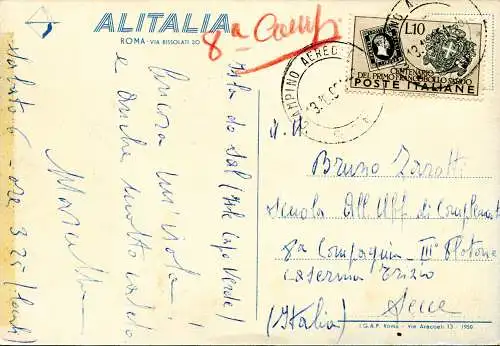 ALITALIA
ROMA - VIA BISSOLATI 20
8ª Comp
CIAMPINO AEREO
L.10
CENTENARIO
DEL PRIMO FRANCOBOLLO SARDO
POSTE ITALIANE
Isola do Sal (Isole Capo Verde)
Ancora un'isola!
e anche molto caldo
Sabato 6 - ore 3.25 (locali)
A
Bruno Zaratti
Scuola All. Uff. di Complemento
8ª Compagnia - III° Plotone
Caserma Trizio
Lecce
(Italia)
I.G.A.P. Roma - Via Aracoeli 13 - 1950